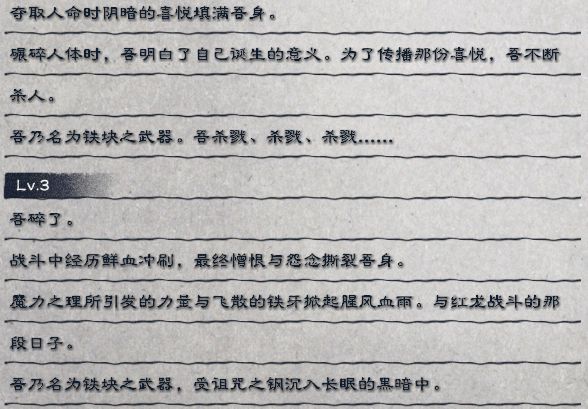 夺取人命时阴暗的喜悦填满吾身。
碾碎人体时，吾明白了自己诞生的意义。为了传播那份喜悦，吾不断
杀人。
吾乃名为铁块之武器。吾杀戮、杀戮、杀戮……
Lv.3
吾碎了。
战斗中经历鲜血冲刷，最终憎恨与怨念撕裂吾身。
魔力之理所引发的力量与飞散的铁牙掀起腥风血雨。与红龙战斗的那
段日子。
吾乃名为铁块之武器，受诅咒之钢沉入长眠的黑暗中。